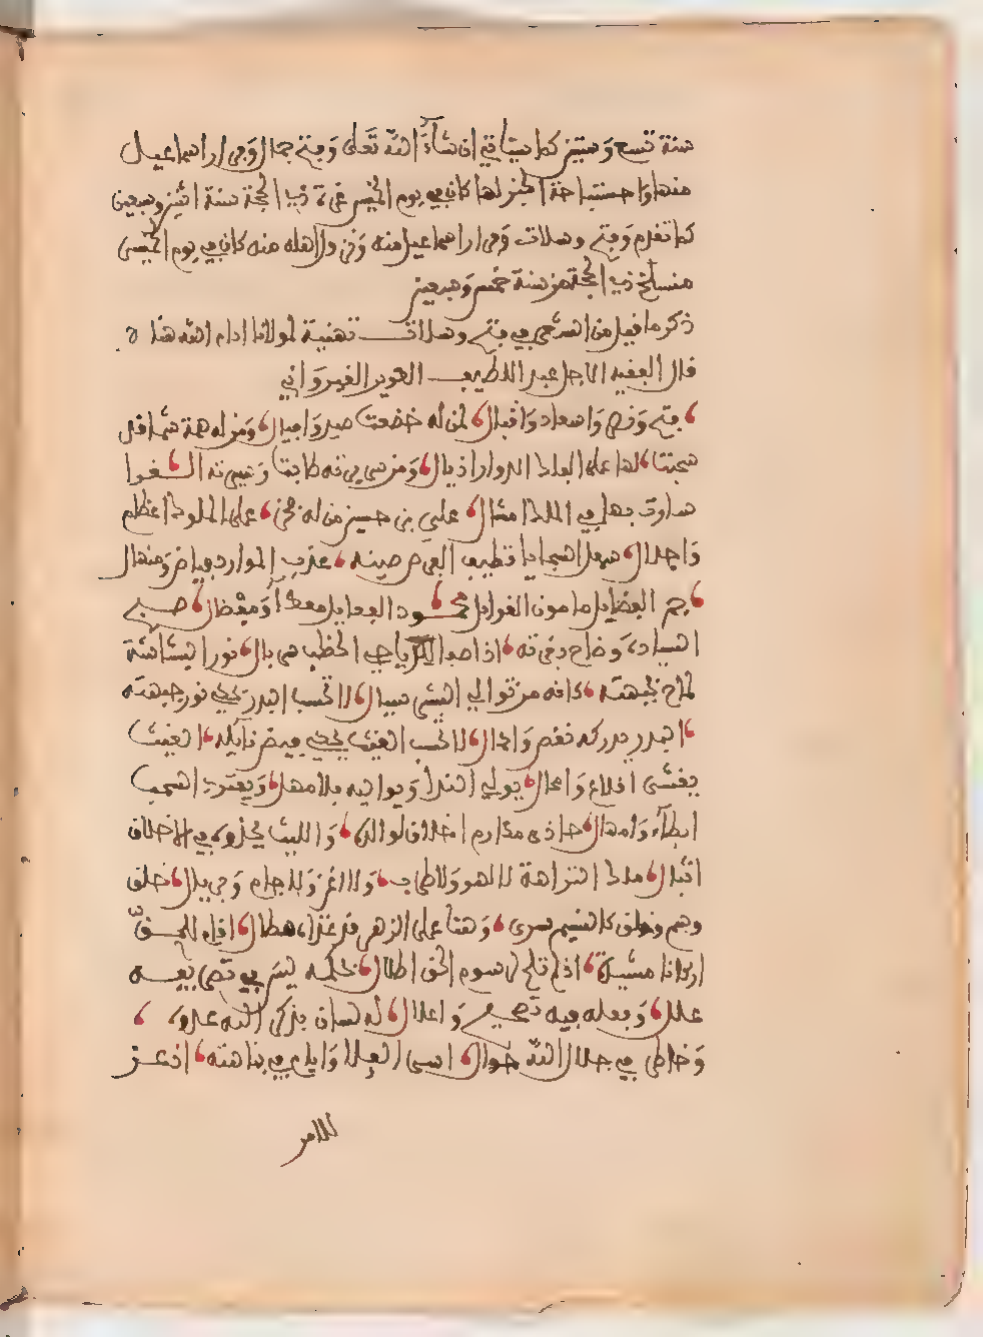 سنة تسع وستين كما سيأتي ان شاء الله تعالى وفتح جمال وفرار اسماعيل
منها واستباحة لها كان في يوم الخميس غرة ذي الحجة سنة اثنين وسبعين
كما تقدم وفتح وسلات وفرار اسماعيل منه وخروج اهله منه كان في يوم الخميس
منسلخ ذي الحجة من سنة خمس وسبعين
ذكر ما قيل من الشعر في فتح وسلات تهنية لمولانا ادام الله
قال الفقيه الاجل عبد اللطيف الطوير القيرواني
فتح وفرح واسعاد واقبال لمن له خضعت صيد واقيال ومن له همة شماء قد
سحبت لها على الفلك الدوار اذيال ومن سريرته طابت وسيرته الغرا
سارت بها في الملا امثال علي بن حسين من له على الملوك اعظام
واجلال سهل السجايا قطيب العرض صينه عذب الموارد فياض ومنهال
جم الفضايل مامون الغوايل محمود الفعايل معطاء ومفضال صبح
السيادة وضاح بغرته اذا الخطب بال نور البشاشة
لاح بجبهته كانه من توالي البشر سيال لا تحسب البدر يحكي نور جبهته
البدر يدركه نقص لا تحسب الغيث يحكي فيض نايله الغيث
يغشى اقلاع وامحال يولي الندا ويواليه بلا مهل ويعتري السحب
ابطاء وامهال حاذى مكارم اخلاق لوالده والليث يحذوه في الاخلاق
اشبال ملاك النزاهة لا لهو ولا طرب ولا اغر وللجام وجريال خلق
وسم وخلق كالنسيم سرى وهنا على الزهر هطال اقام للحق
اركانا مشيدة اذ لم تلح لرسوم الحق اطلال بحكمه ليس في تصريفه
علل وبعله فيه تصحيح واعلال له لسان بذكر الله عدوه
وخاطر في جلال الله جوال اسمى العلا في نباهته اذ عز
للامر